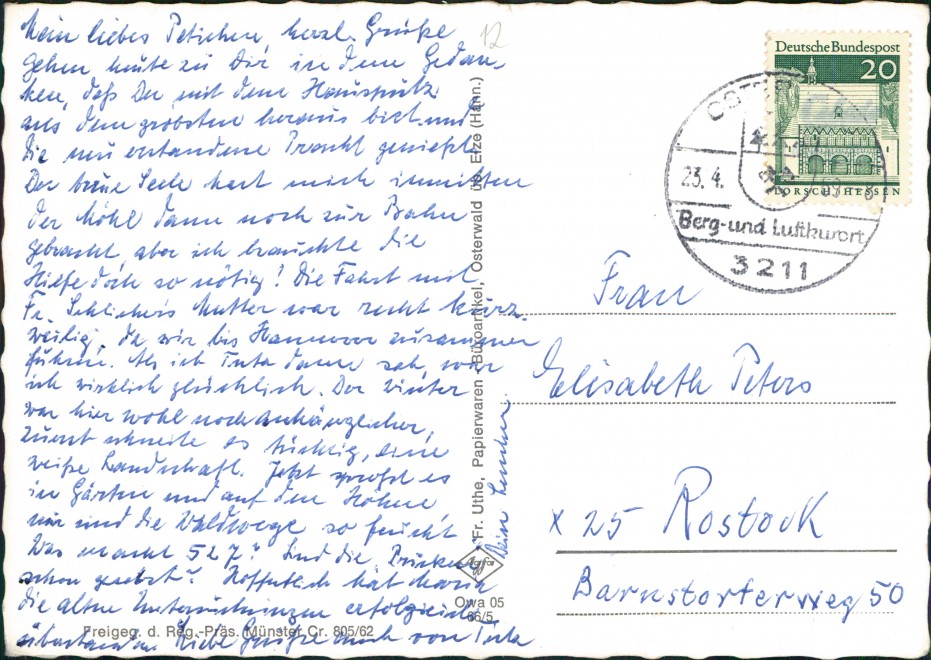 Mein liebes Petichen, herzl. Grüße
gehen heute zu Dir in dem Gedan-
ken, daß Du mit dem Hausputz
aus dem gröbsten heraus bist und
die neu entandene Pracht genießt.
Der treue Seele hat mich inmitten
der dann noch zur Bahn
gebracht, aber ich brauchte die
Hilfe doch so nötig! Die Fahrt mit
Fr. Mutter war recht kurz-
weilig, da wir bis Hannover zusammen
fuhren. Als ich Tuta dann sah, war
ich wirklich glücklich. Der Winter
war hier wohl noch anhänglicher,
zuerst schneite es tüchtig, eine
weiße Landschaft. Jetzt sproßt es
in Gärten und auf den Höhen
nur sind die Waldwege so feucht.
Was macht 527? Sind die
schon gesetzt? Hoffentlich hat Maria
die alten Untersuchungen erfolgreich
überstanden. Liebe Grüße auch von Tuta
Deine
12
Fr. Uthe, Papierwaren - Büroartikel, Osterwald üb. Elze (Hann.)
Agfa
Owa 05
66/5
Freigeg. d. Reg.-Präs. Münster Cr. 805/62
Deutsche Bundespost
20
LORSCH/HESSEN
23.4.
Berg- und Luftkurort
3211
Frau
Elisabeth Peters
x 25 Rostock
Barnstorferweg 50